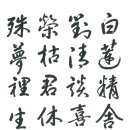 白蓮精舍
對清談喜
榮枯君休
殊夢裡生